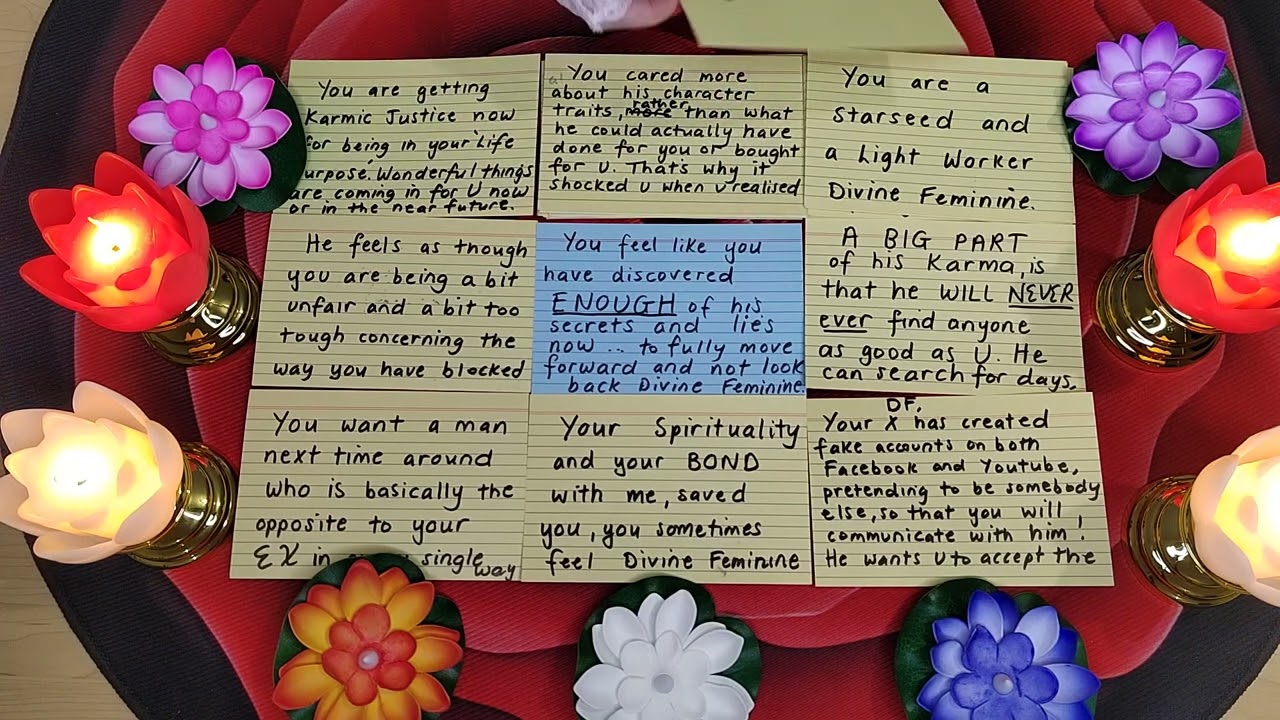 You are getting
Karmic Justice now
for being in your Life
urpose. Wonderful things
are coming in for U now
or in the near future.
You cared more
about his character
traits, rather than what
he could actually have
done for you or bought
for U. That's why it
shocked U when U realised
You are a
starseed and
a Light Worker
Divine Feminine.
He feels as though
you are being a bit
unfair and a bit too
tough concerning the
way you have blocked
You feel like you
have discovered
ENOUGH of his
secrets and lies
now ... to fully move
forward and not look
back Divine Feminine.
A BIG PART
of his Karma, is
that he WILL NEVER
ever find anyone
as good as U. He
can search for days.
You want a man
next time around
who is basically the
opposite to your
EX in single way
Your Spirituality
and your BOND
with me, saved
you, you sometimes
feel Divine Feminine
DF,
Your X has created
fake accounts on both
Facebook and Youtube,
pretending to be somebody
else, so that you will
communicate with him!
He wants U to accept the